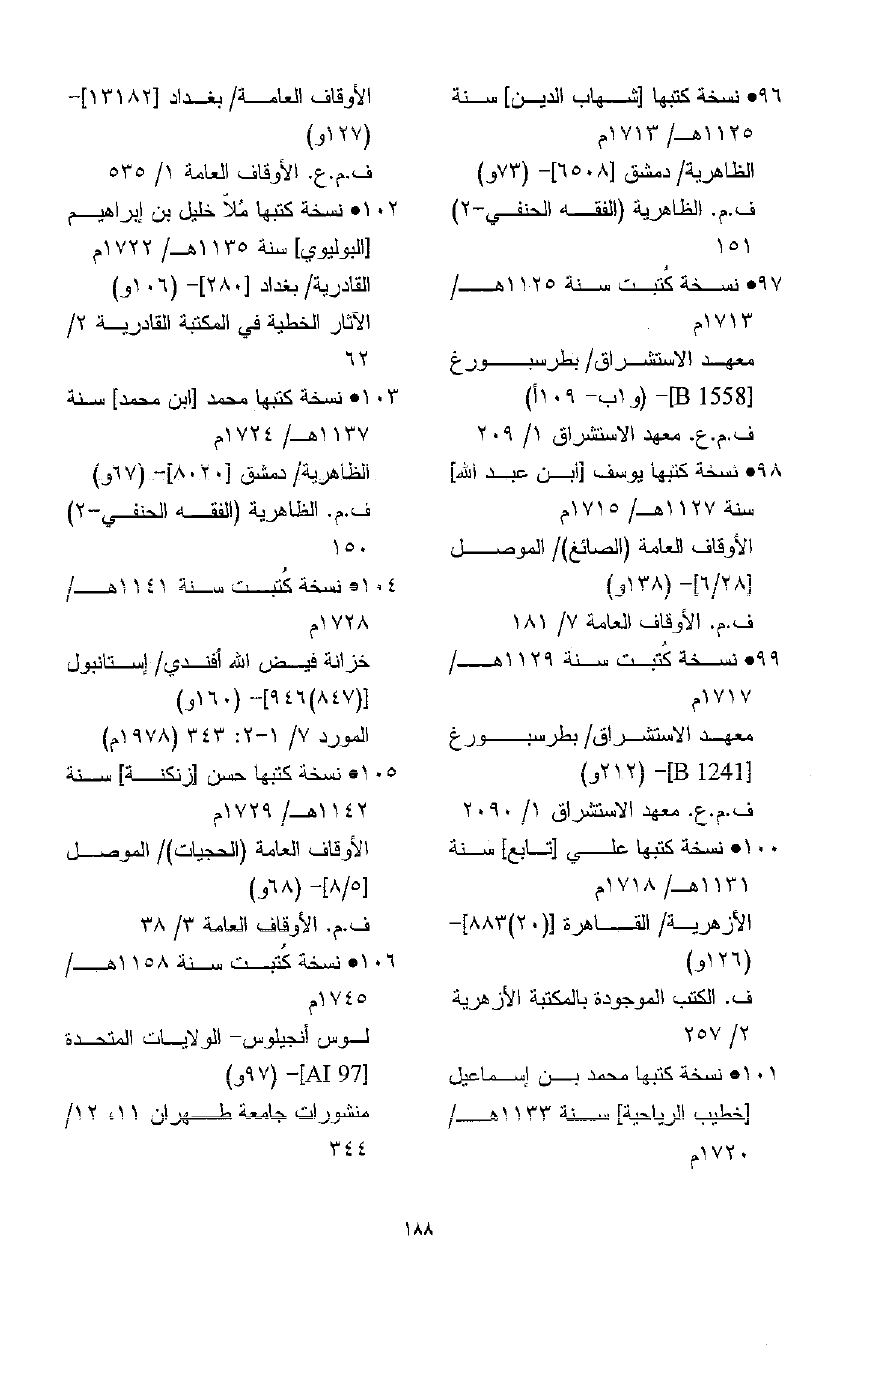 ٩٦• نسخة كتبها [شهاب الدين] سنة
١١٢٥هـ/ ١٧١٣م
الظاهرية/ دمشق [٦٥٠٨]- (٧٣و)
ف.م. الظاهرية (الفقه الحنفي-٢)
١٥١
٩٧• نسخة كُتبت سنة ١١٢٥هـ/
١٧١٣م
معهد الاستشراق/ بطرسبورغ
[B 1558]- (و١ب- ١٠٩أ)
ف.م.ع. معهد الاستشراق ١/ ٢٠٩
٩٨• نسخة كتبها يوسف [أبن عبد الله]
سنة ١١٢٧هـ/ ١٧١٥م
الأوقاف العامة (الصائغ)/ الموصل
[٦/٢٨]- (١٣٨و)
ف.م. الأوقاف العامة ٧/ ١٨١
٩٩• نسخة كُتبت سنة ١١٢٩هـ/
١٧١٧م
معهد الاستشراق/ بطرسبورغ
[B 1241]- (٢١٢و)
ف.م.ع. معهد الاستشراق ١/ ٢٠٩٠
١٠٠• نسخة كتبها علي [تابع] سنة
١١٣١هـ/ ١٧١٨م
الأزهرية/ القاهرة [(٢٠)٨٨٣]-
(١٢٦و)
ف. الكتب الموجودة بالمكتبة الأزهرية
٢/ ٢٥٧
١٠١• نسخة كتبها محمد بن إسماعيل
[خطيب الرياحية] سنة ١١٣٣هـ/
١٧٢٠م
الأوقاف العامة/ بغداد [١٣١٨٢]-
(١٢٧و)
ف.م.ع. الأوقاف العامة ١/ ٥٣٥
١٠٢• نسخة كتبها مُلاّ خليل بن إبراهيم
[البوليوي] سنة ١١٣٥هـ/ ١٧٢٢م
القادرية/ بغداد [٢٨٠]- (١٠٦و)
الآثار الخطية في المكتبة القادرية ٢/
٦٢
١٠٣• نسخة كتبها محمد [ابن محمد] سنة
١١٣٧هـ/ ١٧٢٤م
الظاهرية/ دمشق [٨٠٢٠]- (٦٧و)
ف.م. الظاهرية (الفقه الحنفي-٢)
١٥٠
١٠٤• نسخة كُتبت سنة ١١٤١هـ/
١٧٢٨م
خزانة فيض الله أفندي/ إستانبول
[(٨٤٧)٩٤٦]- (١٦٠و)
المورد ٧/ ١-٢: ٣٤٣ (١٩٧٨م)
١٠٥• نسخة كتبها حسن [زنكنة] سنة
١١٤٢هـ/ ١٧٢٩م
الأوقاف العامة (الحجيات)/ الموصل
[٨/٥]- (٦٨و)
ف.م. الأوقاف العامة ٣/ ٣٨
١٠٦• نسخة كُتبت سنة ١١٥٨هـ/
١٧٤٥م
لوس أنجيلوس- الولايات المتحدة
[AI 97]- (٩٧و)
منشورات جامعة طهران ١١، ١٢/
٣٤٤
١٨٨